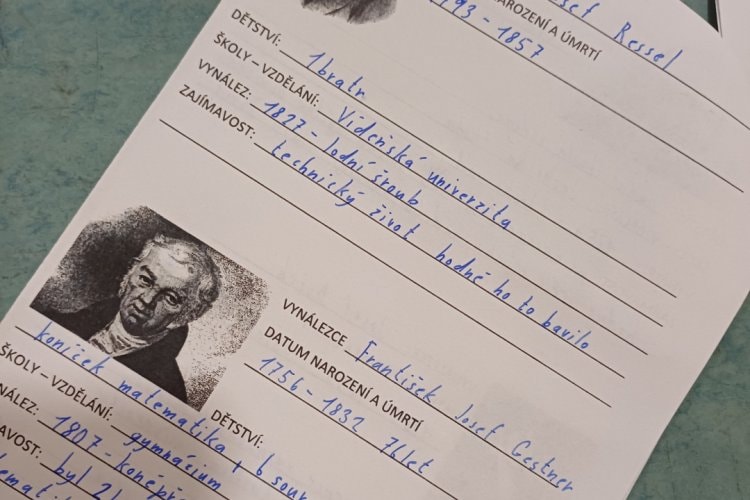 Josef Ressel
NAROZENÍ A ÚMRTÍ
1793 - 1857
DĚTSTVÍ: 1bratr
ŠKOLY – VZDĚLÁNÍ: Vídeňská univerzita
VYNÁLEZ: 1827 - lodní šroub
ZAJÍMAVOST: technický život hodně ho to bavilo
VYNÁLEZCE František Josef Gestner
DATUM NAROZENÍ A ÚMRTÍ
1756 - 1832 76let
DĚTSTVÍ:
koníček matematika, 6 sour
ŠKOLY – VZDĚLÁNÍ: gymnácium
NÁLEZ: 1807 - koněpř
AVOST: byl